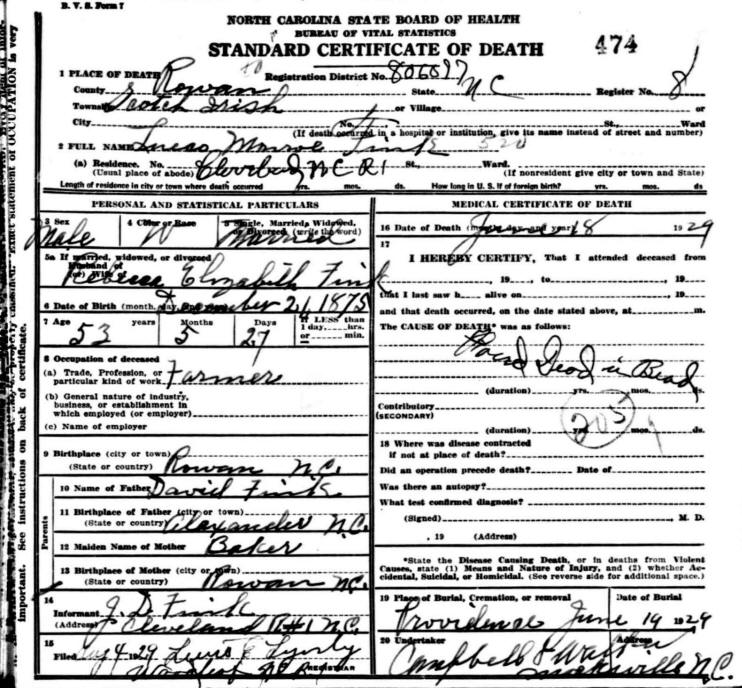 B. V. S. Form 7
NORTH CAROLINA STATE BOARD OF HEALTH
BUREAU OF VITAL STATISTICS
STANDARD CERTIFICATE OF DEATH 474
1 PLACE OF DEATH
Registration District No. 806897
County Rowan State NC Register No. 8
Township Scotch Irish or Village or
City No. St., Ward
(If death occurred in a hospital or institution, give its name instead of street and number)
2 FULL NAME Lucas Monroe Fink
(a) Residence. No. Cleveland N C R1 St., Ward.
(Usual place of abode) (If nonresident give city or town and State)
Length of residence in city or town where death occurred yrs. mos. ds. How long in U. S. if of foreign birth? yrs. mos. ds.
PERSONAL AND STATISTICAL PARTICULARS
3 Sex 4 Color or Race 5 Single, Married, Widowed, or Divorced (write the word)
Male W Married
5a If married, widowed, or divorced
Husband of
(or) Wife of Rebecca Elizabeth Fink
6 Date of Birth (month, day, and year) December 21 1875
7 Age 53 years Months 5 Days 27 If LESS than 1 day, hrs. or min.
8 Occupation of deceased
(a) Trade, Profession, or particular kind of work Farmer
(b) General nature of industry, business, or establishment in which employed (or employer)
(c) Name of employer
9 Birthplace (city or town)
(State or country) Rowan N.C.
Parents
10 Name of Father David Fink
11 Birthplace of Father (city or town)
(State or country) Alexander N.C.
12 Maiden Name of Mother Baker
13 Birthplace of Mother (city or town)
(State or country) Rowan N.C.
14
Informant J. D. Fink
(Address) Cleveland R#1 N.C.
15
Filed 4 1929 Lewis Lyerly
REGISTRAR
MEDICAL CERTIFICATE OF DEATH
16 Date of Death (month, day, and year) June 18 1929
17
I HEREBY CERTIFY, That I attended deceased from
, 19 , to , 19
that I last saw h alive on , 19
and that death occurred, on the date stated above, at m.
The CAUSE OF DEATH* was as follows:
Found Dead in Bead
(duration) yrs. mos. ds.
Contributory
(SECONDARY)
205
(duration) yrs. mos. ds.
18 Where was disease contracted
if not at place of death?
Did an operation precede death? Date of
Was there an autopsy?
What test confirmed diagnosis?
(Signed) , M. D.
, 19 (Address)
*State the Disease Causing Death, or in deaths from Violent
Causes, state (1) Means and Nature of Injury, and (2) whether Ac-
cidental, Suicidal, or Homicidal. (See reverse side for additional space.)
19 Place of Burial, Cremation, or removal Date of Burial
Providence June 19 1929
20 Undertaker
Campbell & Walker
Mocksville N.C.
important. See instructions on back of certificate.